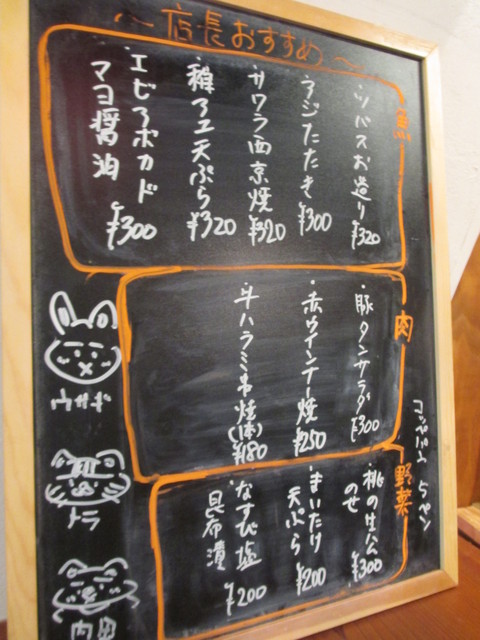 〜店長おすすめ〜
魚
・ツバスお造り ¥320
・アジたたき ¥300
・サワラ西京焼 ¥320
・稚アユ天ぷら ¥320
・エビアボカド
マヨ醤油 ¥300
肉
・豚タンサラダ ¥300
・赤ウインナー焼 ¥250
・牛ハラミ串焼(1本) ¥180
野菜
・桃の生ハム
のせ ¥300
・まいたけ
天ぷら ¥200
・なすび塩
昆布漬 ¥200
ウサギ
トラ